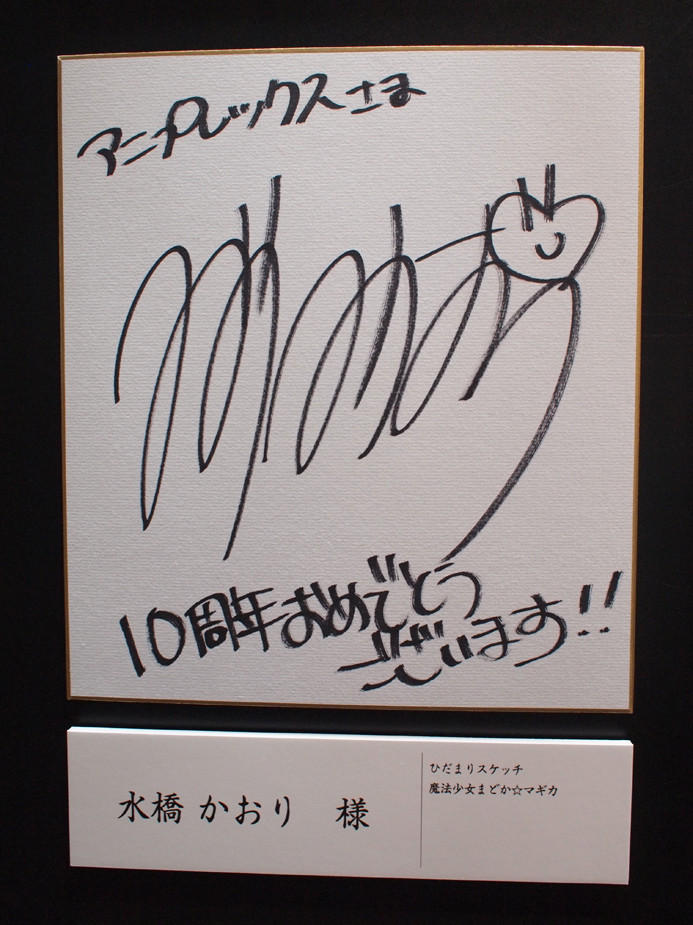 アニプレックスさま
10周年おめでとう
ございます!!
水橋 かおり 様
ひだまりスケッチ
魔法少女まどか☆マギカ